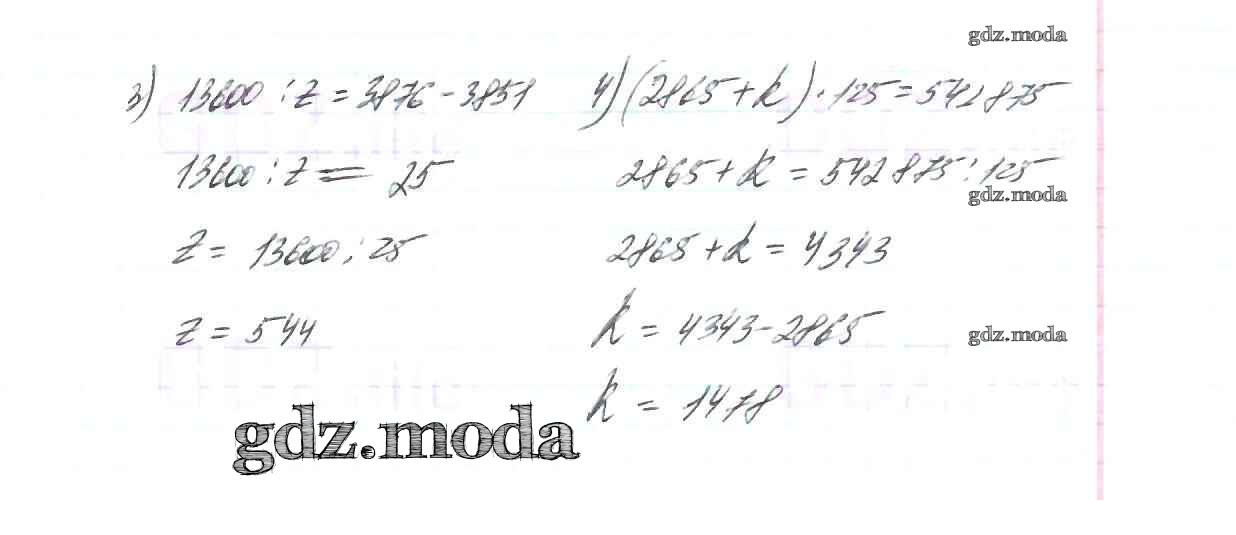 gdz.moda
3) 13600 : z = 3876 - 3851
13600 : z = 25
z = 13600 : 25
z = 544
4) (2865 + k) · 125 = 542875
2865 + k = 542875 : 125
gdz.moda
2865 + k = 4343
k = 4343 - 2865
gdz.moda
k = 1478
gdz.moda